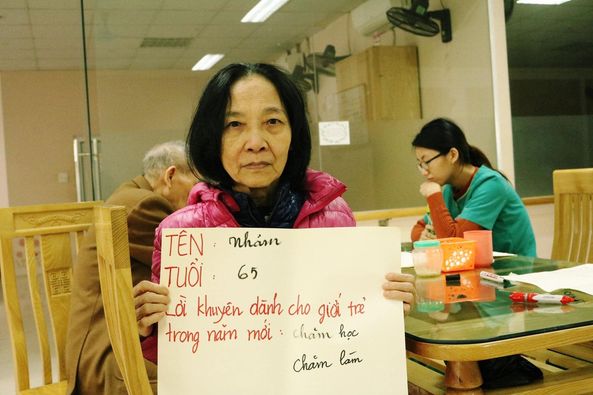 TÊN : Nhâm
TUỔI : 65
Lời khuyên dành cho giới trẻ
trong năm mới : chăm học
Chăm làm